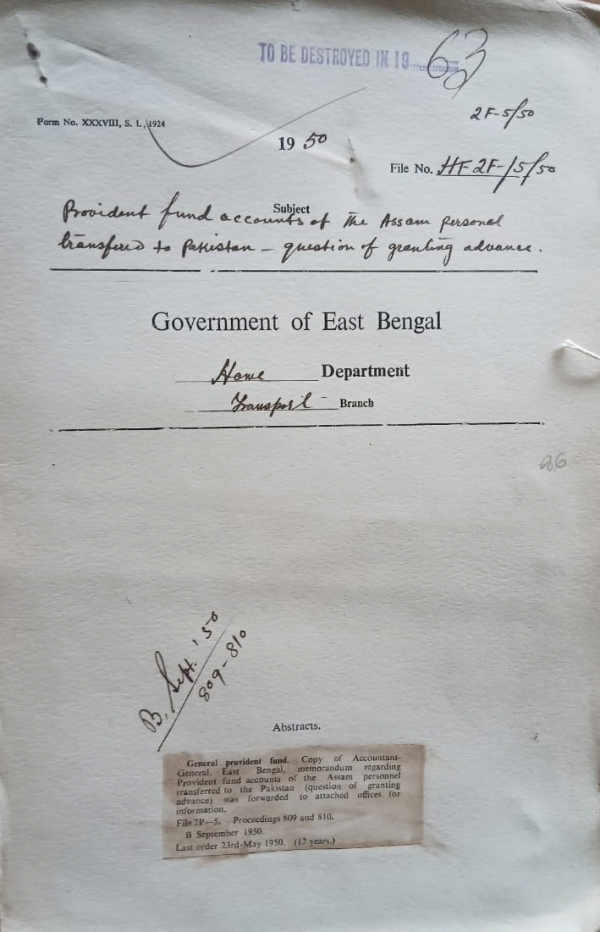 TO BE DESTROYED IN 19 63
2F-5/50
Form No. XXXVIII, S. I., 1924
1950
File No. HF 2F-/5/50
Subject
Provident fund accounts of the Assam personal
transfered to Pakistan - question of granting advance.
Government of East Bengal
Home Department
Transport Branch
26
B. Sept. '50
809-810
Abstracts.
General provident fund. Copy of Accountant-
General, East Bengal, memorandum regarding
Provident fund accounts of the Assam personnel
transferred to the Pakistan (question of granting
advance) was forwarded to attached offices for
information.
File 2P—5. Proceedings 809 and 810.
B September 1950.
Last order 23rd-May 1950. (12 years.)